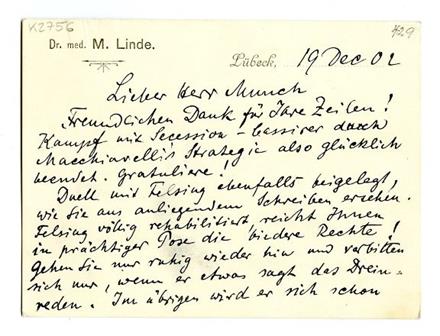 K2756
429
Dr. med. M. Linde.
Lübeck, 19 Dec 02
Lieber Herr Munch
Freundlichen Dank für Ihre Zeilen!
Kampf mit Secession – Cassirer durch
Macchiavelli's Strategie also glücklich
beendet. Gratuliere!
Duell mit Felsing ebenfalls beigelegt,
wie Sie aus anliegendem Schreiben ersehen.
Felsing völlig rehabilitirt reicht Ihnen
in prächtiger Pose die biedere Rechte!
Gehen Sie nur ruhig wieder hin und verbitten
sich nur, wenn er etwas sagt das Drein=
reden. Im übrigen wird er sich schon